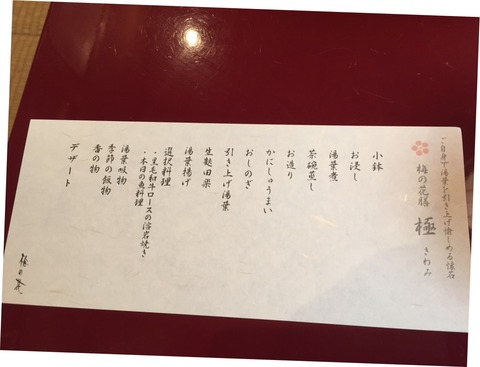 ご自身で湯葉を引き上げ愉しめる懐石
梅の花膳 極 きわみ
小鉢
お浸し
湯葉煮
茶碗蒸し
お造り
かにしゅうまい
おしのぎ
引き上げ湯葉
生麩田楽
湯葉揚げ
選択料理
・黒毛和牛ロースの溶岩焼き
・本日の魚料理
湯葉吸物
季節の飯物
香の物
デザート
梅の花